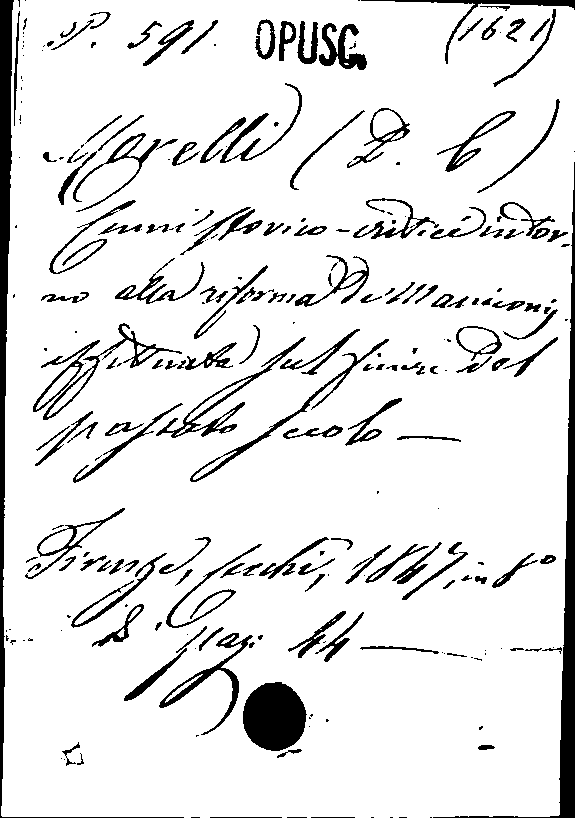 P. 591. OPUSC. (1621)
Morelli (P. C)
Cenni storico-critici intor-
no alla riforma de' Manicomj
effettuata sul finire del
passato secolo —
Firenze, Cecchi, 1847, in 8°
di pag. 44 —